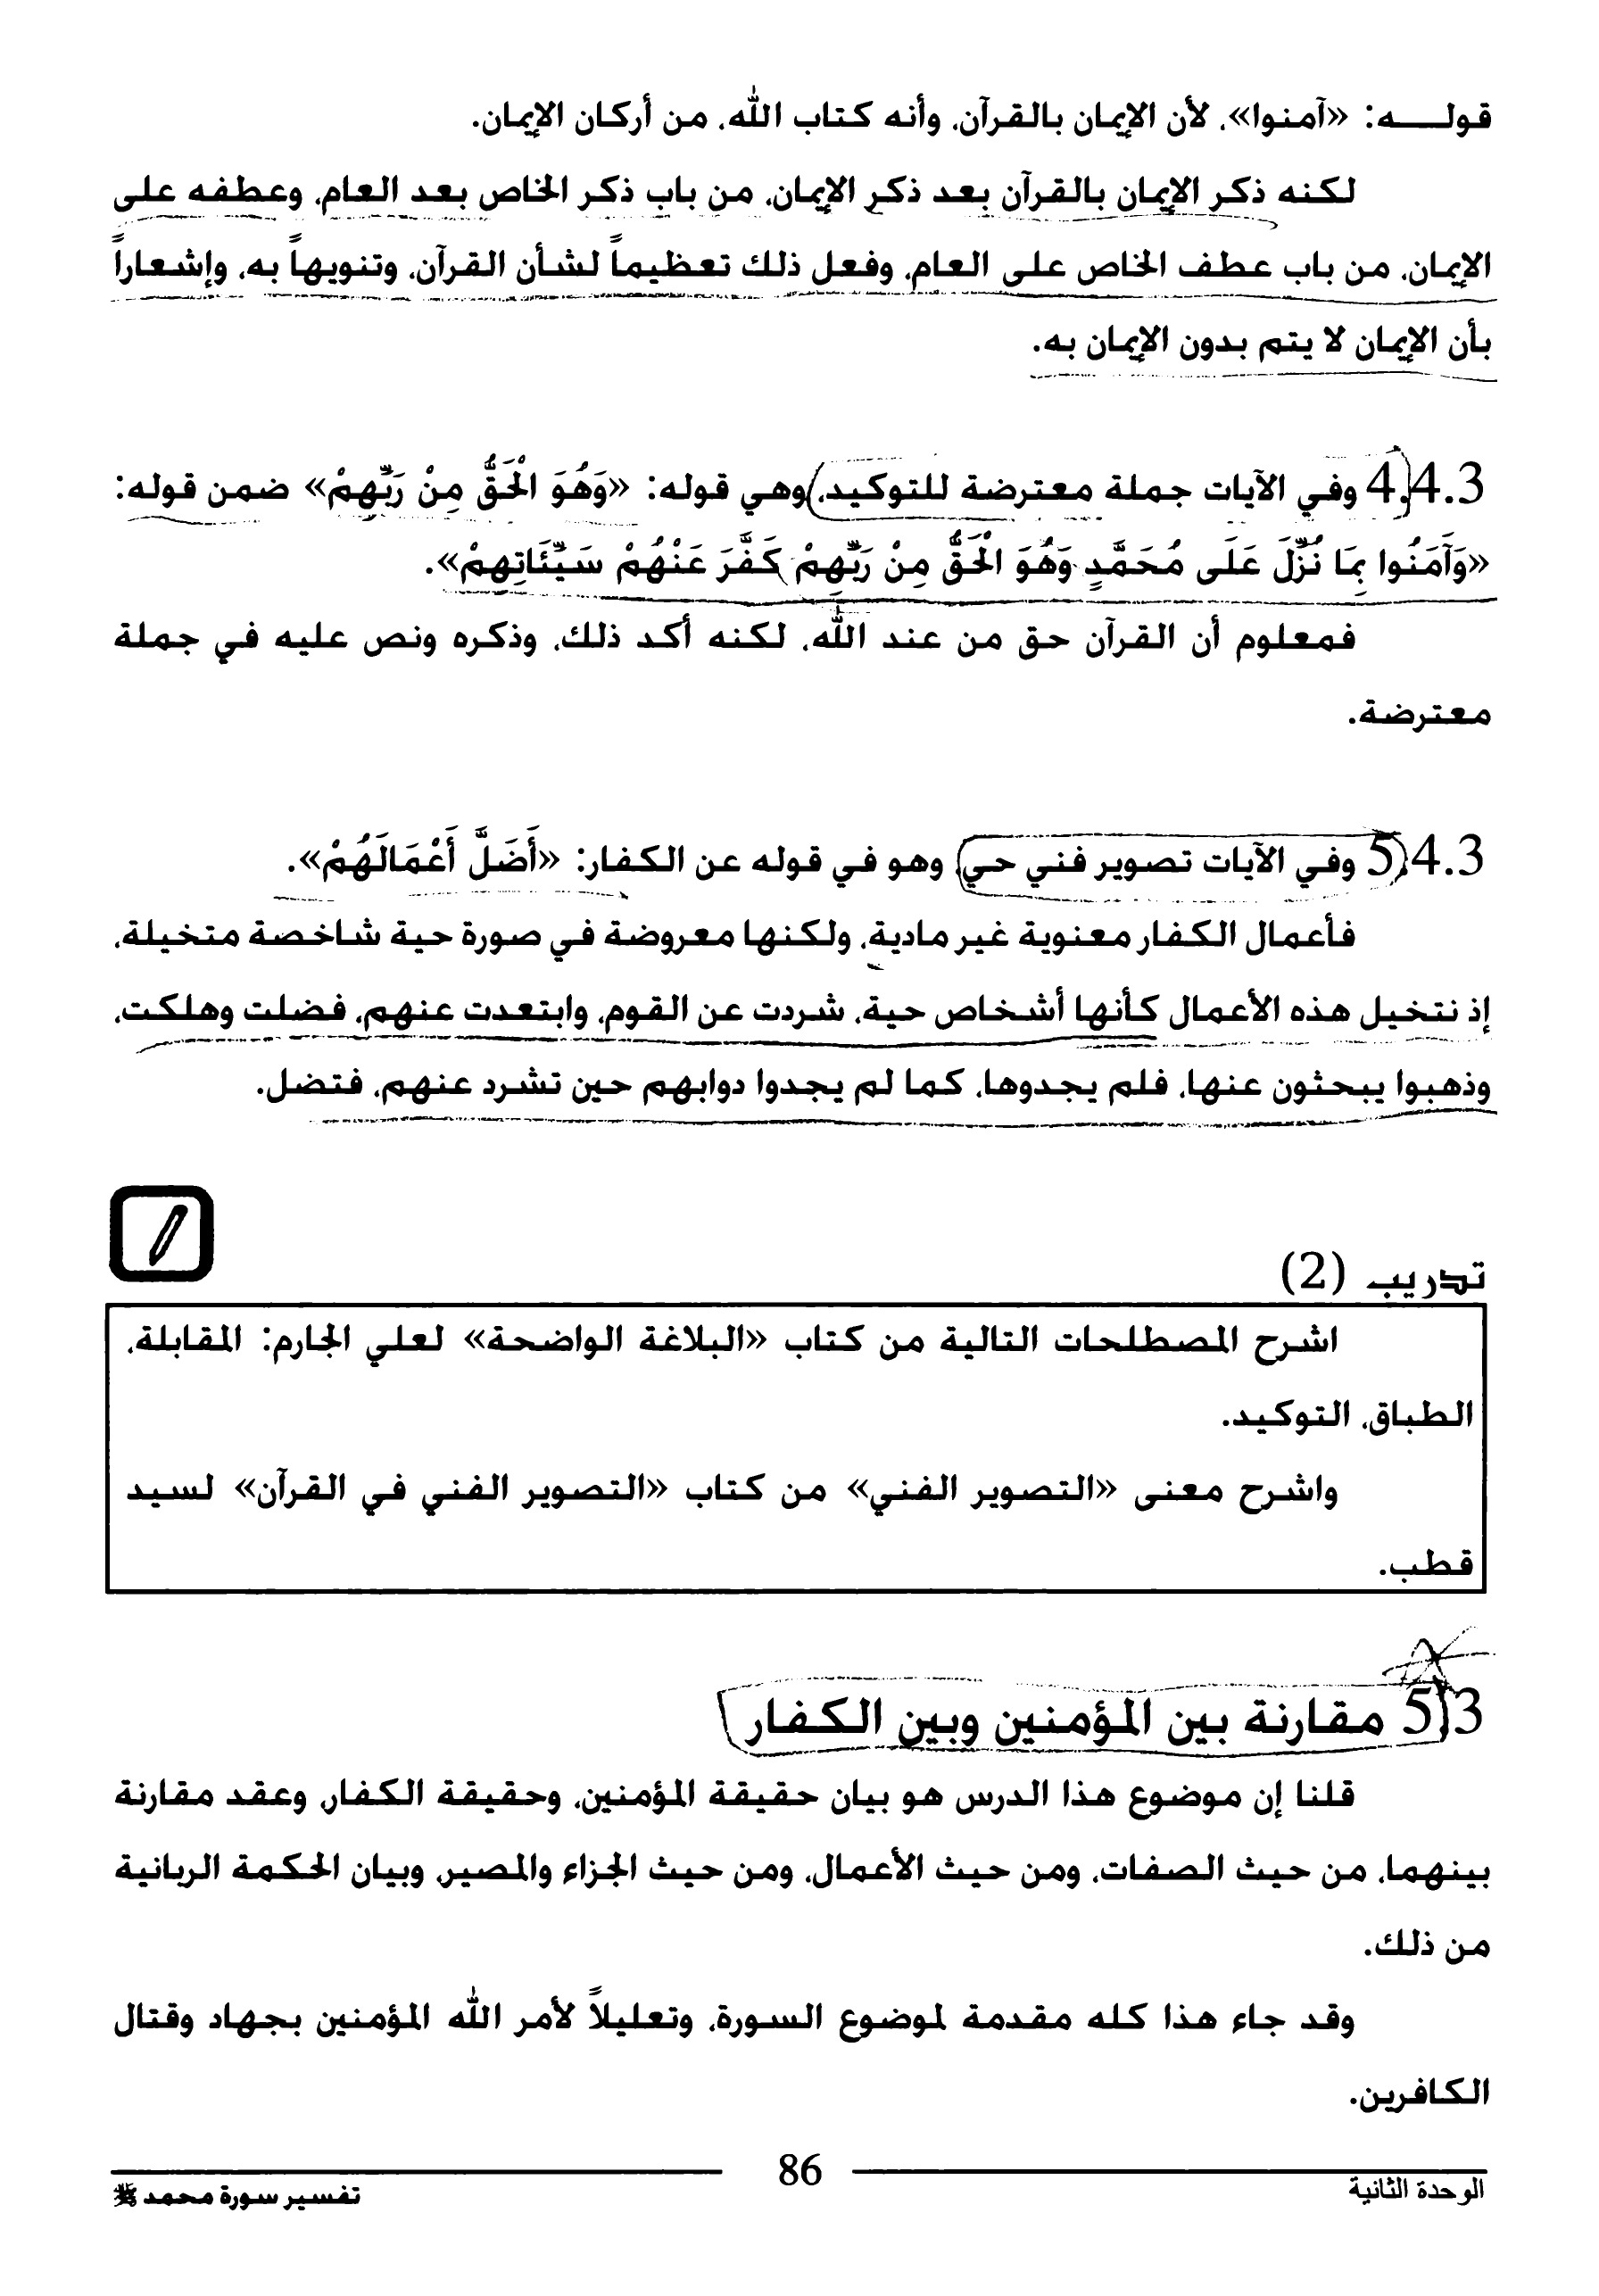 قولـــه: «آمنوا»، لأن الإيمان بالقرآن، وأنه كتاب الله، من أركان الإيمان.
لكنه ذكر الإيمان بالقرآن بعد ذكر الإيمان، من باب ذكر الخاص بعد العام، وعطفه على
الإيمان، من باب عطف الخاص على العام، وفعل ذلك تعظيماً لشأن القرآن، وتنويهاً به، وإشعاراً
بأن الإيمان لا يتم بدون الإيمان به.
4.4.3 وفي الآيات جملة معترضة للتوكيد، وهي قوله: «وَهُوَ الْحَقُّ مِنْ رَبِّهِمْ» ضمن قوله:
«وَآمَنُوا بِمَا نُزِّلَ عَلَى مُحَمَّدٍ وَهُوَ الْحَقُّ مِنْ رَبِّهِمْ كَفَّرَ عَنْهُمْ سَيِّئَاتِهِمْ».
فمعلوم أن القرآن حق من عند الله، لكنه أكد ذلك، وذكره ونص عليه في جملة
معترضة.
5.4.3 وفي الآيات تصوير فني حي، وهو في قوله عن الكفار: «أَضَلَّ أَعْمَالَهُمْ».
فأعمال الكفار معنوية غير مادية، ولكنها معروضة في صورة حية شاخصة متخيلة،
إذ نتخيل هذه الأعمال كأنها أشخاص حية، شردت عن القوم، وابتعدت عنهم، فضلت وهلكت،
وذهبوا يبحثون عنها، فلم يجدوها، كما لم يجدوا دوابهم حين تشرد عنهم، فتضل.
تدريب (2)
اشرح المصطلحات التالية من كتاب «البلاغة الواضحة» لعلي الجارم: المقابلة،
الطباق، التوكيد.
واشرح معنى «التصوير الفني» من كتاب «التصوير الفني في القرآن» لسيد
قطب.
5.3 مقارنة بين المؤمنين وبين الكفار
قلنا إن موضوع هذا الدرس هو بيان حقيقة المؤمنين، وحقيقة الكفار، وعقد مقارنة
بينهما، من حيث الصفات، ومن حيث الأعمال، ومن حيث الجزاء والمصير، وبيان الحكمة الربانية
من ذلك.
وقد جاء هذا كله مقدمة لموضوع السورة، وتعليلاً لأمر الله المؤمنين بجهاد وقتال
الكافرين.
86
الوحدة الثانية
تفسير سورة محمد ﷺ